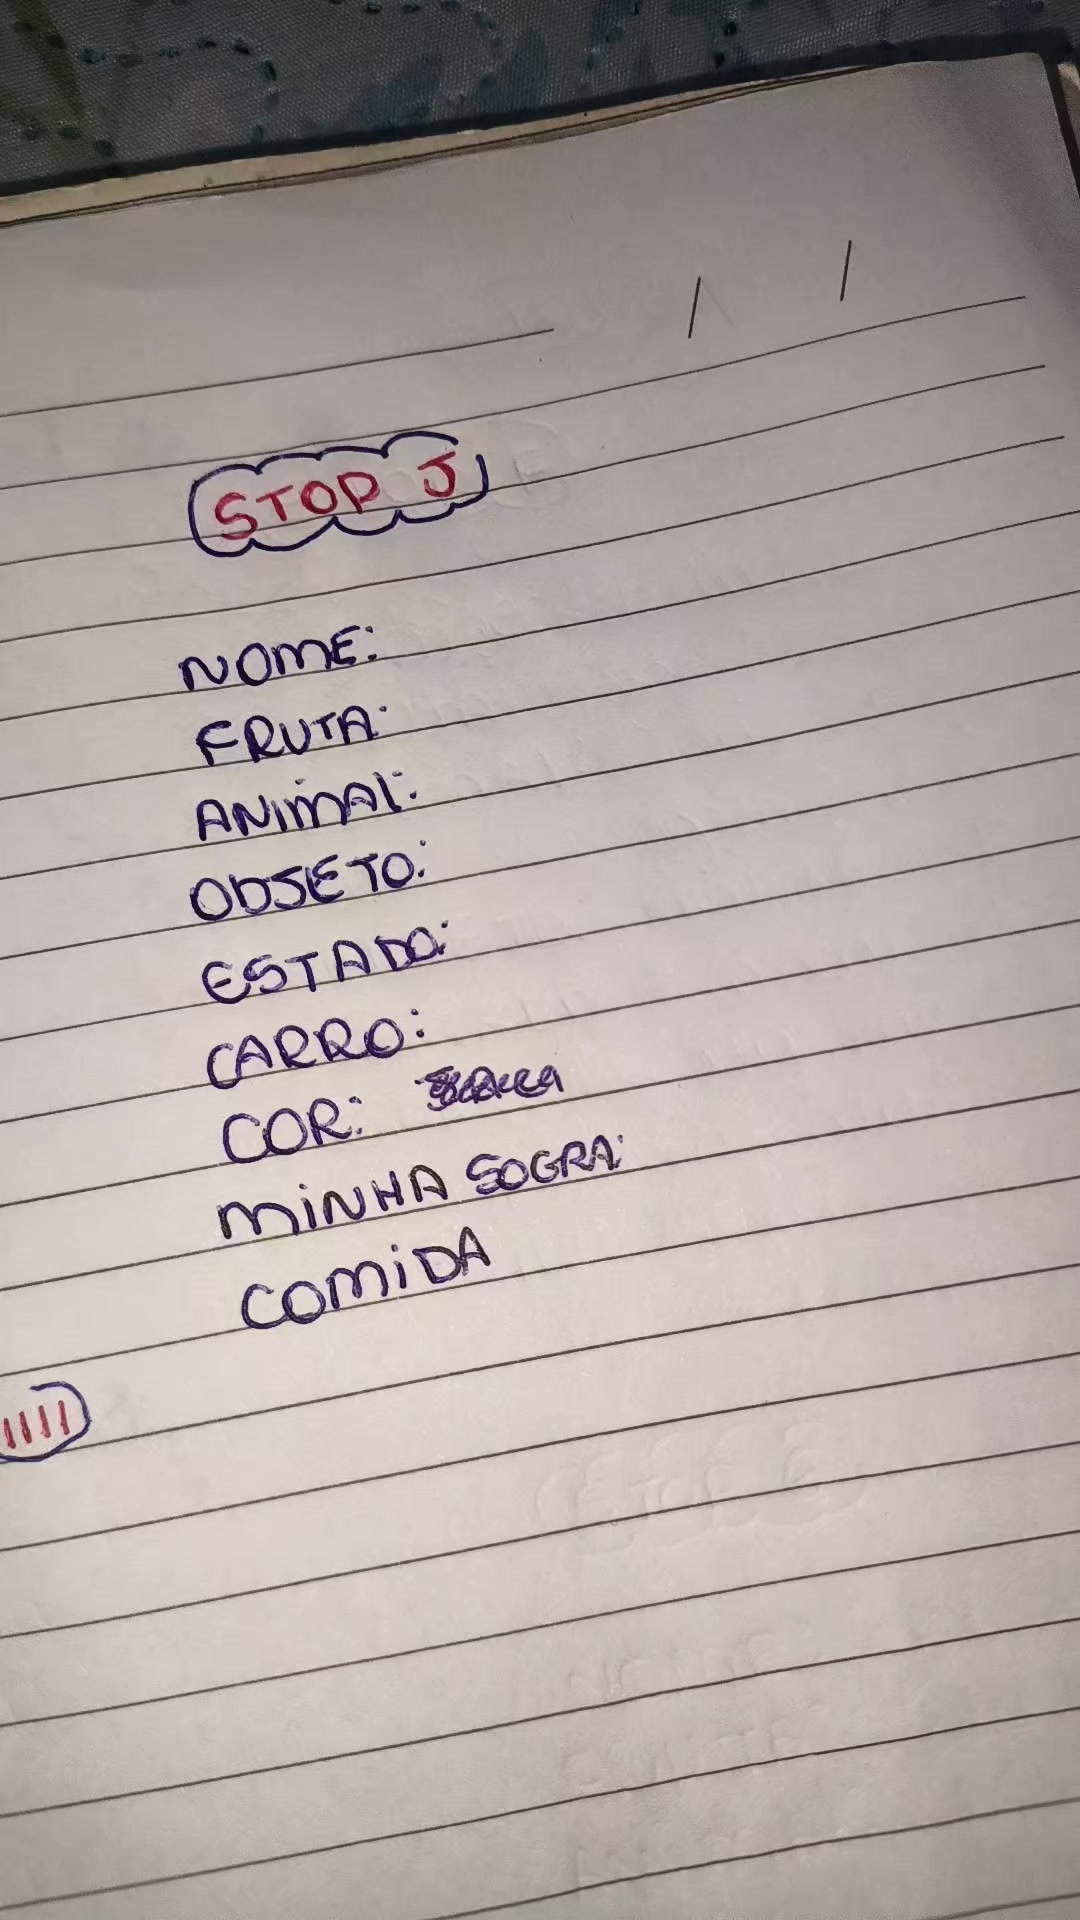 STOP J
NOME:
FRUTA:
ANIMAL:
OBJETO:
ESTADO:
CARRO:
COR:
MINHA SOGRA:
COMIDA